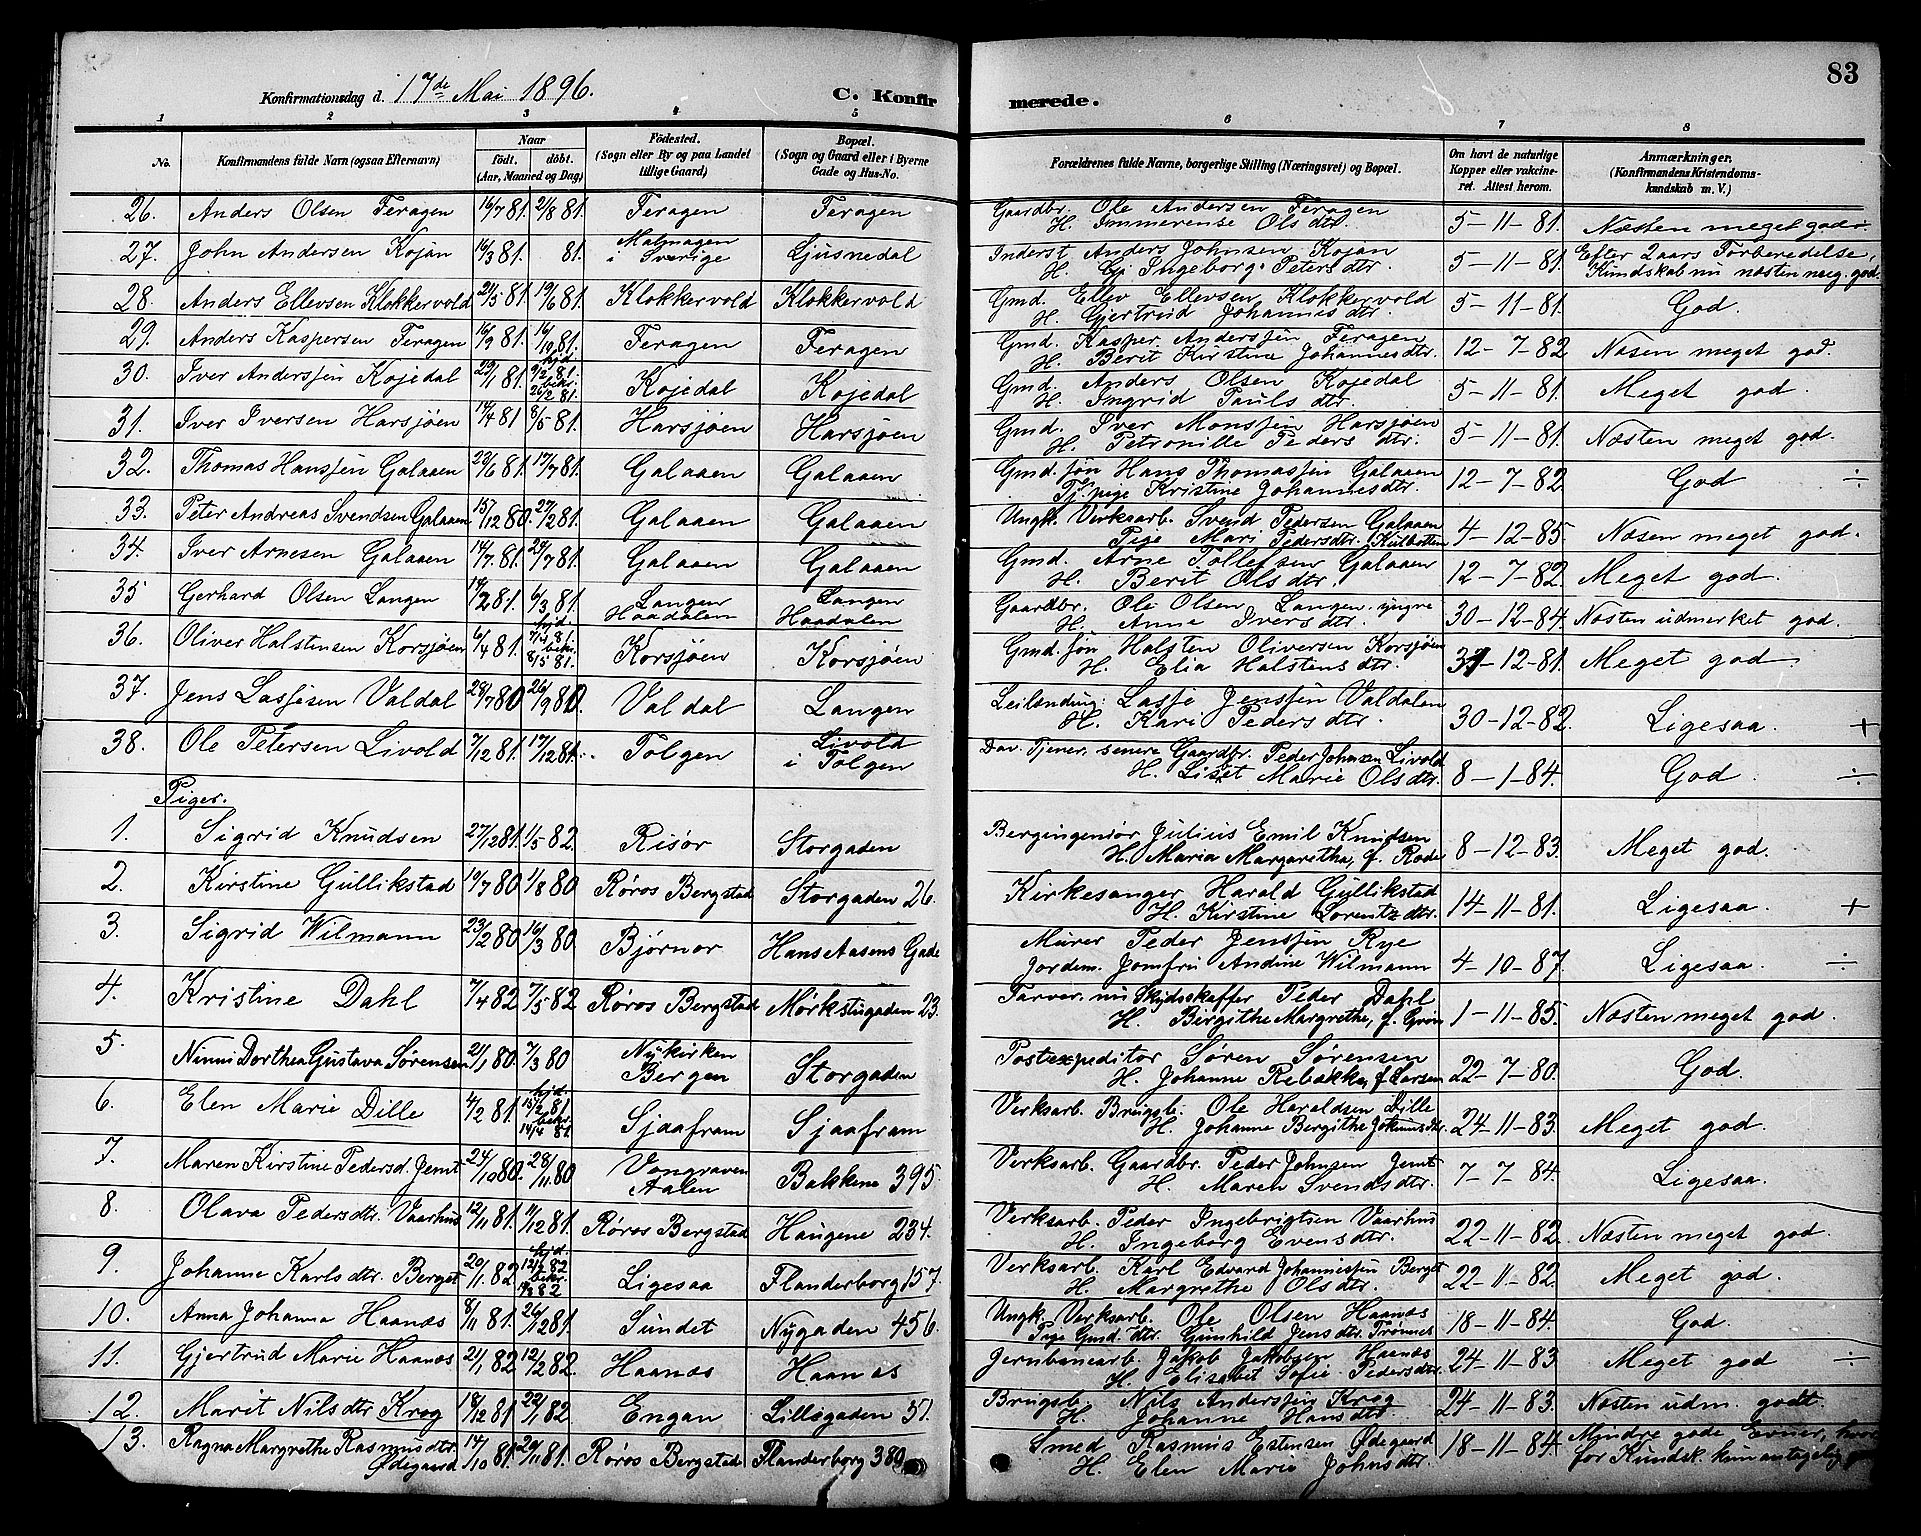 83
Konfirmationsdag d. 17de Mai 1896.
C. Konfirmerede.
1 2 3 4 5 6 7 8
No. Konfirmandens fulde Navn (ogsaa Efternavn) Naar født, døbt. (Aar, Maaned og Dag) Fødested. (Sogn eller By og paa Landet tillige Gaard) Bopæl. (Sogn og Gaard eller i Byerne Gade og Hus-No. Forældrenes fulde Navne, borgerlige Stilling (Næringsvei) og Bopæl. Om havt de naturlige Kopper eller vakcineret. Attest herom. Anmærkninger. (Konfirmandens Kristendomskundskab m. V.)
26. Anders Olsen Feragen 16/7 81. 21/8 81. Feragen Feragen Gaardbr. Ole Andersen Feragen H. Immerense Olsdtr. 5-11-81. Næsten meget god
27. John Andersen Kojan 16/3 81. 81. Malmagen i Sverige Ljusnedal Inderst Anders Johnsen Kojan H. Gj. Ingeborg Petersdtr. 5-11-81. Efter 2 aars Forberedelse, Kundskab nu næsten meg. god.
28. Anders Ellevsen Klokkervold 21/5 81. 19/6 81. Klokkervold Klokkervold Gmd. Ellev Ellevsen Klokkervold H. Gjertrud Johannesdtr. 5-11-81. God.
29. Anders Kaspersen Feragen 16/9 81. 16/10 81. Feragen Feragen Gmd. Kasper Anderssen Feragen H. Berit Kirstine Johannesdtr. 12-7-82 Næsen meget god.
30. Iver Anderssen Kojedal 29/1 81. hjd. 9/2 81. bekr. 26/2 81. Kojedal Kojedal Gmd. Anders Olsen Kojedal H. Ingrid Paulsdtr. 5-11-81. Meget god
31. Iver Iversen Harsjøen 14/4 81 8/5 81. Harsjøen Harsjøen Gmd. Iver Monssen Harsjøen H. Petronille Pedersdtr. 5-11-81. Næsten meget god.
32. Thomas Hanssen Galaaen 29/6 81. 17/7 81. Galaaen Galaaen Gmd. søn Hans Thomassen Galaaen Tj. pige Kristine Johannesdtr. 12-7-82 God ÷
33. Peter Andreas Svendsen Galaaen 15/12 80. 27/2 81. Galaaen Galaaen Ungk. Verksarb. Svend Pedersen Galaaen Pige Mari Pedersdtr. Kulbotten 4-12-85. Næsen meget god.
34. Iver Arnesen Galaaen 14/7 81. 29/7 81. Galaaen Galaaen Gmd. Arne Tollefsen Galaaen H. Berit Olsdtr. 12-7-82. Meget god.
35 Gerhard Olsen Langen 14/2 81. 6/3 81. Langen Haadalen Langen Haadalen Gaardbr. Ole Olsen Langen yngre H. Anne Iversdtr. 30-12-84. Næsten udmerket god.
36. Oliver Halstensen Korsjøen 6/4 81. hjd. 7/4 81. bekr. 8/5 81. Korsjøen Korsjøen Gmd. søn Halsten Oliversen Korsjøen H. Elia Halstensdtr. 31-12-81. Meget god
37. Jens Lassesen Valdal 28/7 80 26/9 80. Valdal Langen Leilænding Lasse Jenssen Valdalen H. Kari Pedersdtr. 30-12-82. Ligesaa. +
38. Ole Petersen Livold 7/12 81. 17/12 81. Tolgen Livold i Tolgen Dav. Tjener, senere Gaardbr. Peder Johnsen Livold H. Liset Marie Olsdtr. 8-1-84. God. ÷
Piger.
1. Sigrid Knudsen 27/12 81. 1/5 82 Risør Storgaden Bergingeniør Julius Emil Knudsen H. Maria Margaretha, f. Rode 8-12-83. Meget god.
2. Kirstine Gullikstad 19/7 80 1/8 80 Røros Bergstad Storgaden 26. Kirkesanger Harald Gullikstad H. Kirstine Lorentzdtr. 14-11-81. Ligesaa. +
3. Sigrid Wilmann 23/2 80 16/3 80 Bjørnor Hans Aasens Gade Murer Peder Jenssen Rye Jordem. Jomfru Andine Wilmann 4-10-87. Ligesaa. ÷
4. Kristine Dahl 7/4 82 7/5 82 Røros Bergstad Mørkstugaden 23. Farver. nu Skydsskaffer Peder Dahl H. Bergithe Margrethe, f. Grøn 1-11-85. Næsten meget god.
5. Ninni Dorthea Gustava Sørensen 21/1 80. 7/3 80 Nykirken Bergen Storgaden Postexpeditør Søren Sørensen H. Johanne Rebekka, f. Larsen 22-7-80. God.
6. Elen Marie Dille 4/2 81. hjd. 15/2 81 bekr. 14/4 81. Sjaafram Sjaafram Verksarb. Brugsb. Ole Haraldsen Dille H. Johanne Bergithe Johnsdtr. 24-11-83. Meget god.
7. Maren Kirstine Pedersd. Jemt 24/10 80. 28/11 80 Vongraven Aalen Bakkene 395. Verksarb. Gaardbr. Peder Johnsen Jemt H. Maren Svendsdtr. 7-7-84. Ligesaa.
8. Olava Pedersdtr. Vaarhus 12/11 81. 11/12 81. Røros Bergstad Haugene 234. Verksarb. Peder Ingebrigtsen Vaarhus H. Ingeborg Evensdtr. 22-11-82. Næsten meget god.
9. Johanne Karlsdtr. Berget 20/1 82. hjd. 12/2 82 bekr. 19/3 82 Ligesaa Flanderborg 157. Verksarb. Karl Edvard Johannessen Berget H. Margrethe Olsdtr. 22-11-82. Meget god.
10. Anna Johanna Haanæs 8/11 81. 26/12 81. Sundet Nygaden 456. Ungk. Verksarb. Ole Olsen Haanæs Pige Gmd. dtr. Gunhild Jensdtr. Trønnes 18-11-84. God.
11. Gjertrud Marie Haanæs 21/1 82 12/2 82. Haanæs Haanæs Jernbanearb. Jakob Jakobsen Haanæs H. Elisabet Sofie Pedersdtr. 24-11-83 Meget god ÷
12. Marit Nilsdtr Krog 18/12 81 22/1 82 Engan Lillegaden 51. Brugsb. Nils Anderssen Krog H. Johanne Hansdtr. 24-11-83. Næsten udm. godt.
13. Ragna Margrethe Rasmusdtr. Ødegaard 14/10 81. 20/11 81. Røros Bergstad Flanderborg 380 Smed Rasmus Estensen Ødegaard H. Elen Marie Johnsdtr. 18-11-84. Mindre gode Evner, hvorfor Kundsk. kun antagelig